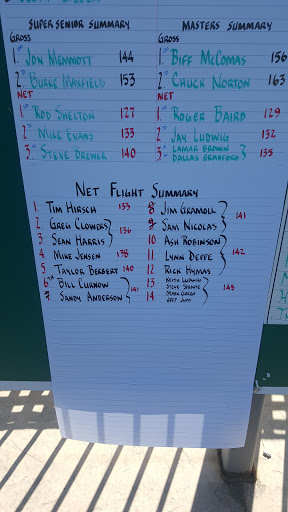 SUPER SENIOR SUMMARY
GROSS
1st JON MEMMOTT 144
2nd BURKE MAXFIELD 153
NET
1st ROD SHELTON 127
2nd MIKE EVANS 133
3rd STEVE BREWER 140
MASTERS SUMMARY
GROSS
1st BIFF MCCOMAS 156
2nd CHUCK NORTON 163
NET
1st ROGER BAIRD 129
2nd JAY LUDWIG 132
3rd LAMAR BROWN
DALLAS BRADFORD } 135
NET FLIGHT SUMMARY
1 TIM HIRSCH 133
2 GREG CLOWERS
3 SEAN HARRIS } 136
4 MIKE JENSEN 138
5 TAYLOR DEBBERT 140
6 BILL CURNOW
7 SANDY ANDERSON } 141
8 JIM GRAMOLL
9 SAM NICOLAS } 141
10 ASH ROBINSON
11 LYNN DEPPE } 142
12 RICK HYMAS
13 KEITH
14 STEVE
MARK
JEFF } 143